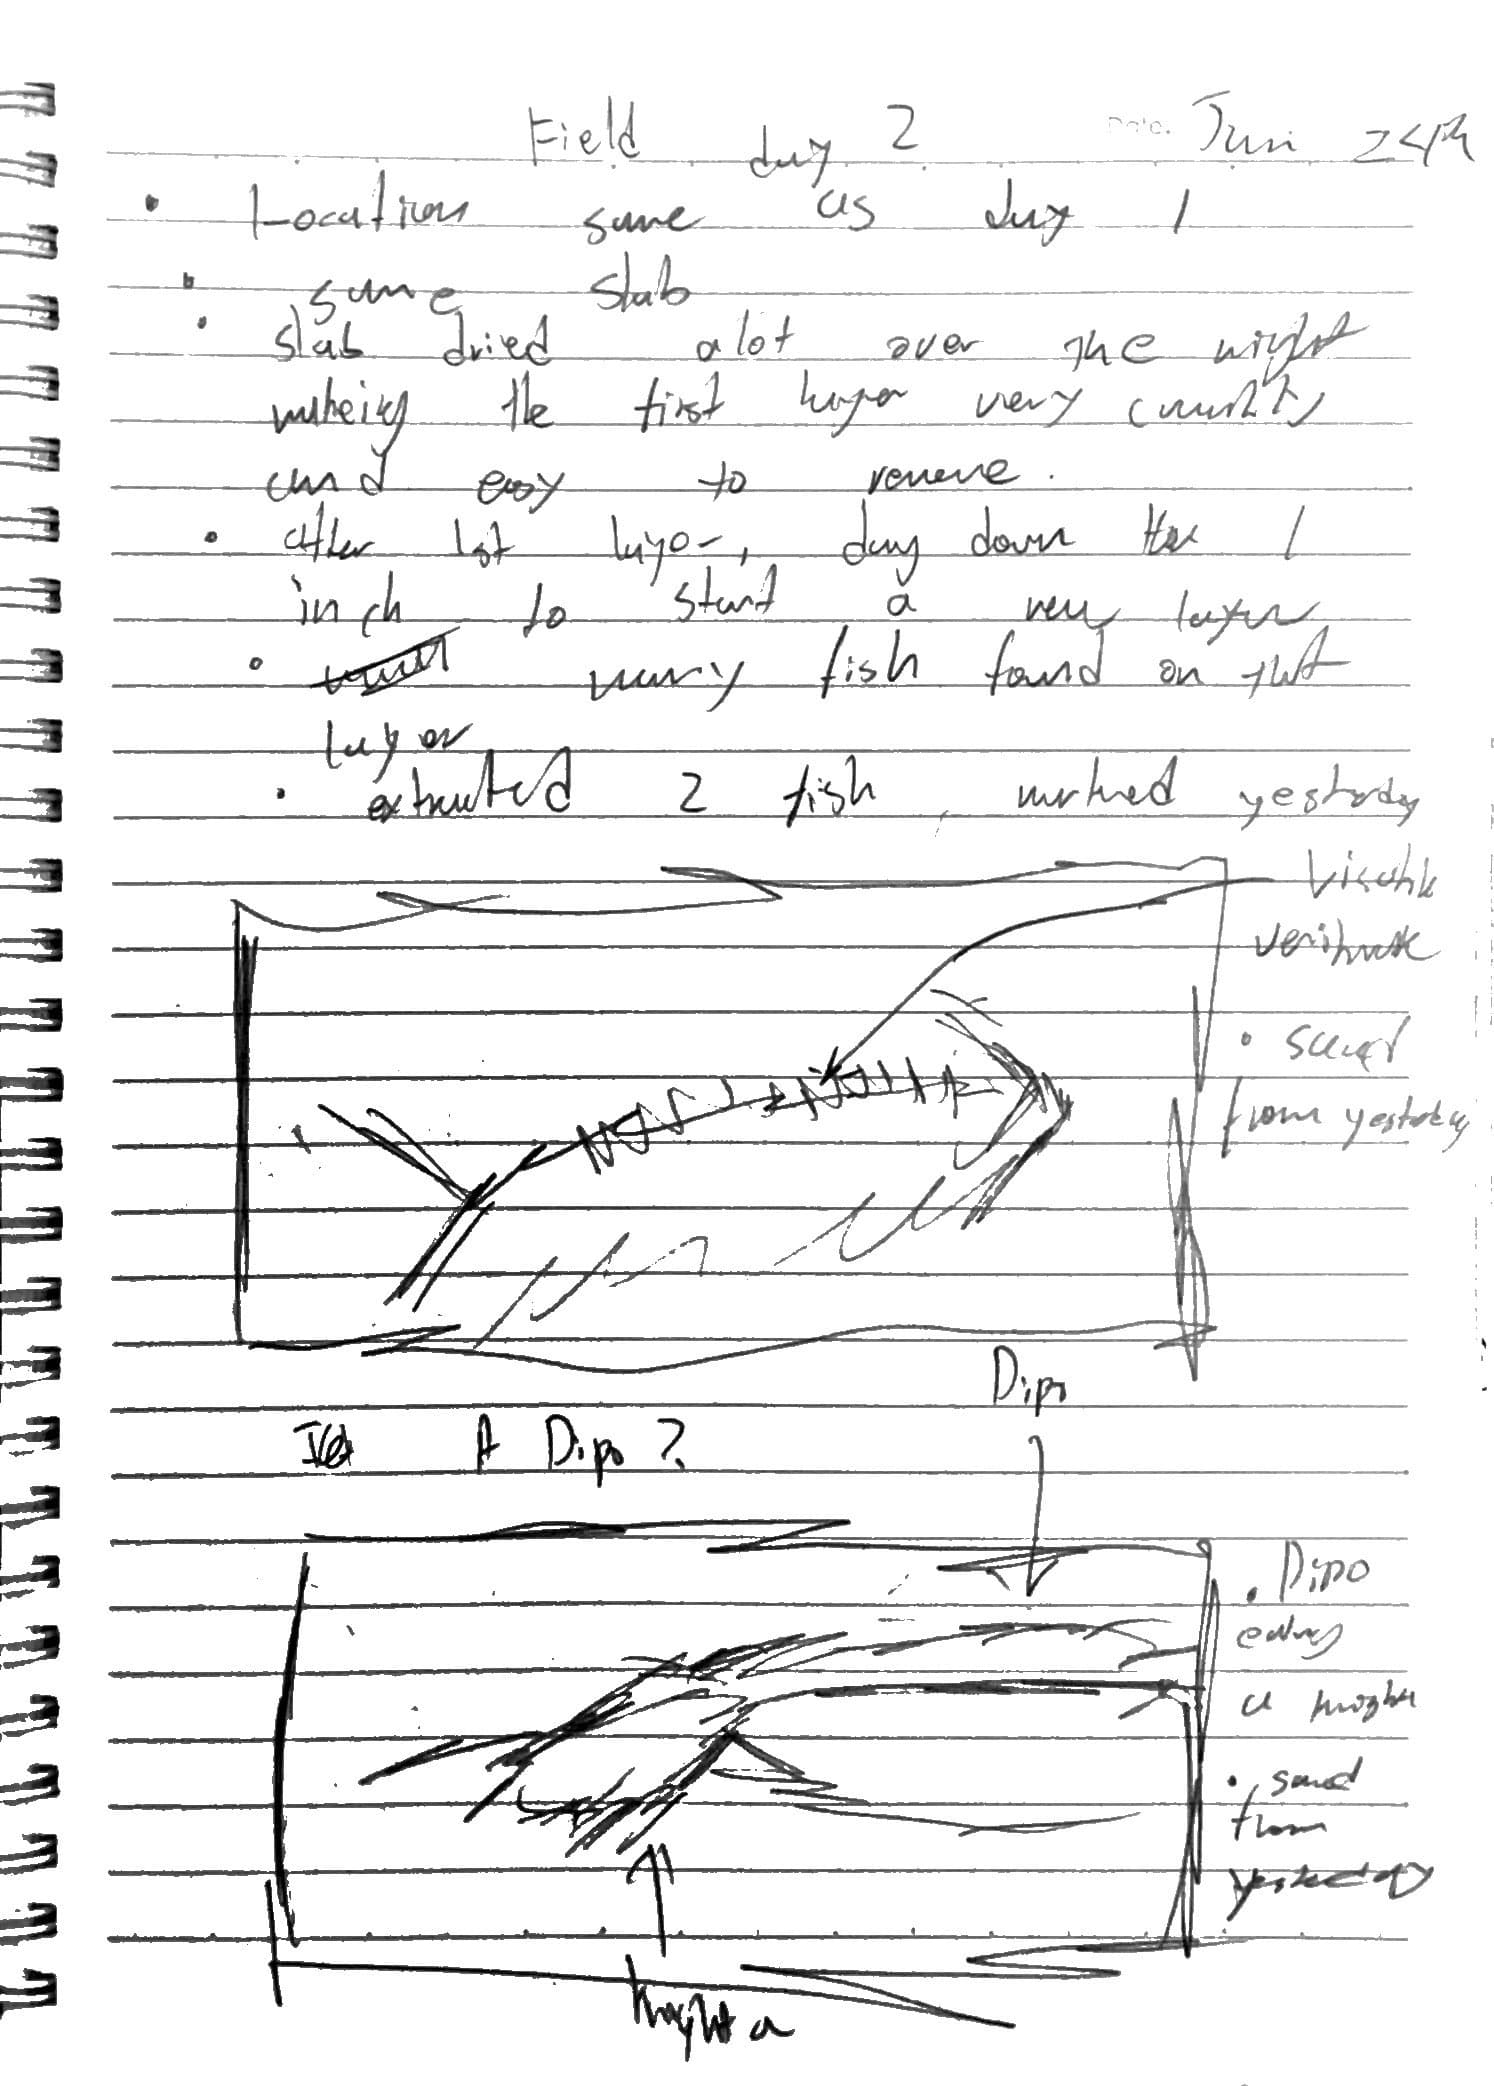 Field day 2 Date. Jun 24th
• Location same as day 1
• same slab
• slab dried alot over the night
making the first layer very crumbly
and easy to remove.
• After 1st layer, dug down the 1
inch to start a new layer
• many fish found on that
layer
• extracted 2 fish, marked yesterday
Visible
vertebrae
• saved
from yesterday
Dipo
A Dipo?
• Dipo
eating
a knightia
• saved
from
yesterday
Knightia